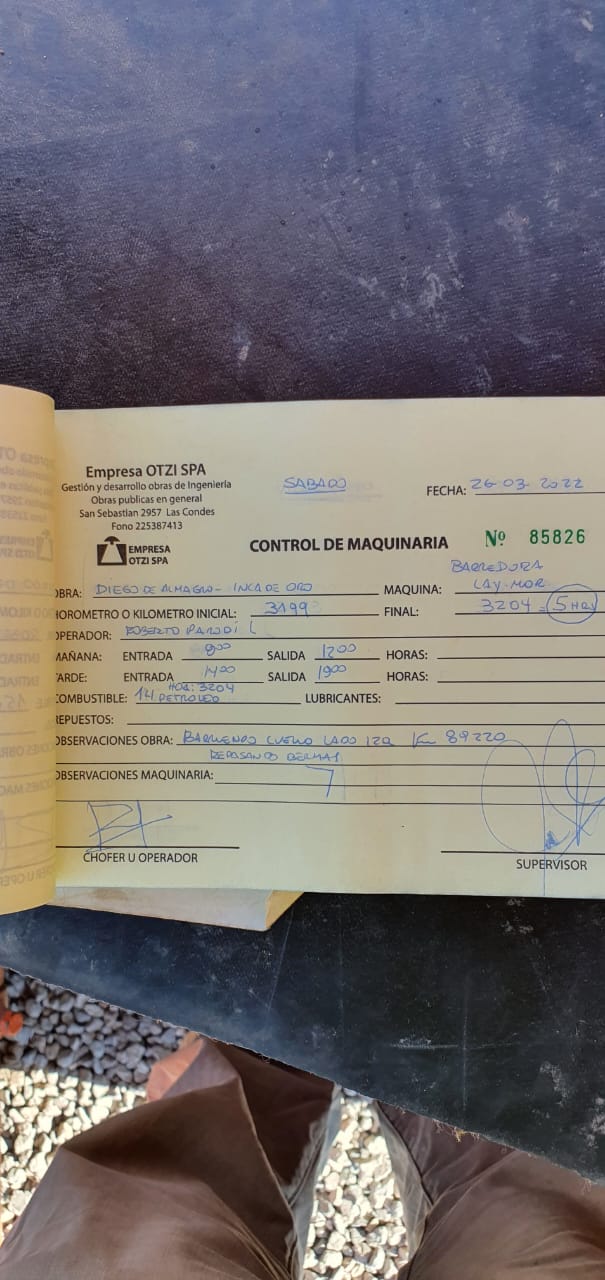 Empresa OTZI SPA
Gestión y desarrollo obras de Ingeniería
Obras publicas en general
San Sebastian 2957 Las Condes
Fono 225387413
EMPRESA
OTZI SPA
SABADO
FECHA: 26-03-2022
CONTROL DE MAQUINARIA
Nº 85826
BARREDORA
OBRA: DIEGO DE ALMAGRO - INCA DE ORO MAQUINA: LAY-MOR
HOROMETRO O KILOMETRO INICIAL: 3199 FINAL: 3204 = 5 HRS
OPERADOR: ROBERTO PARODI L
MAÑANA: ENTRADA 800 SALIDA 1200 HORAS:
TARDE: ENTRADA 1400 SALIDA 1900 HORAS:
HOR: 3204
COMBUSTIBLE: PETROLEO LUBRICANTES:
REPUESTOS:
OBSERVACIONES OBRA: BARRIENDO LADO IZQ Km 89220
OBSERVACIONES MAQUINARIA:
CHOFER U OPERADOR
SUPERVISOR